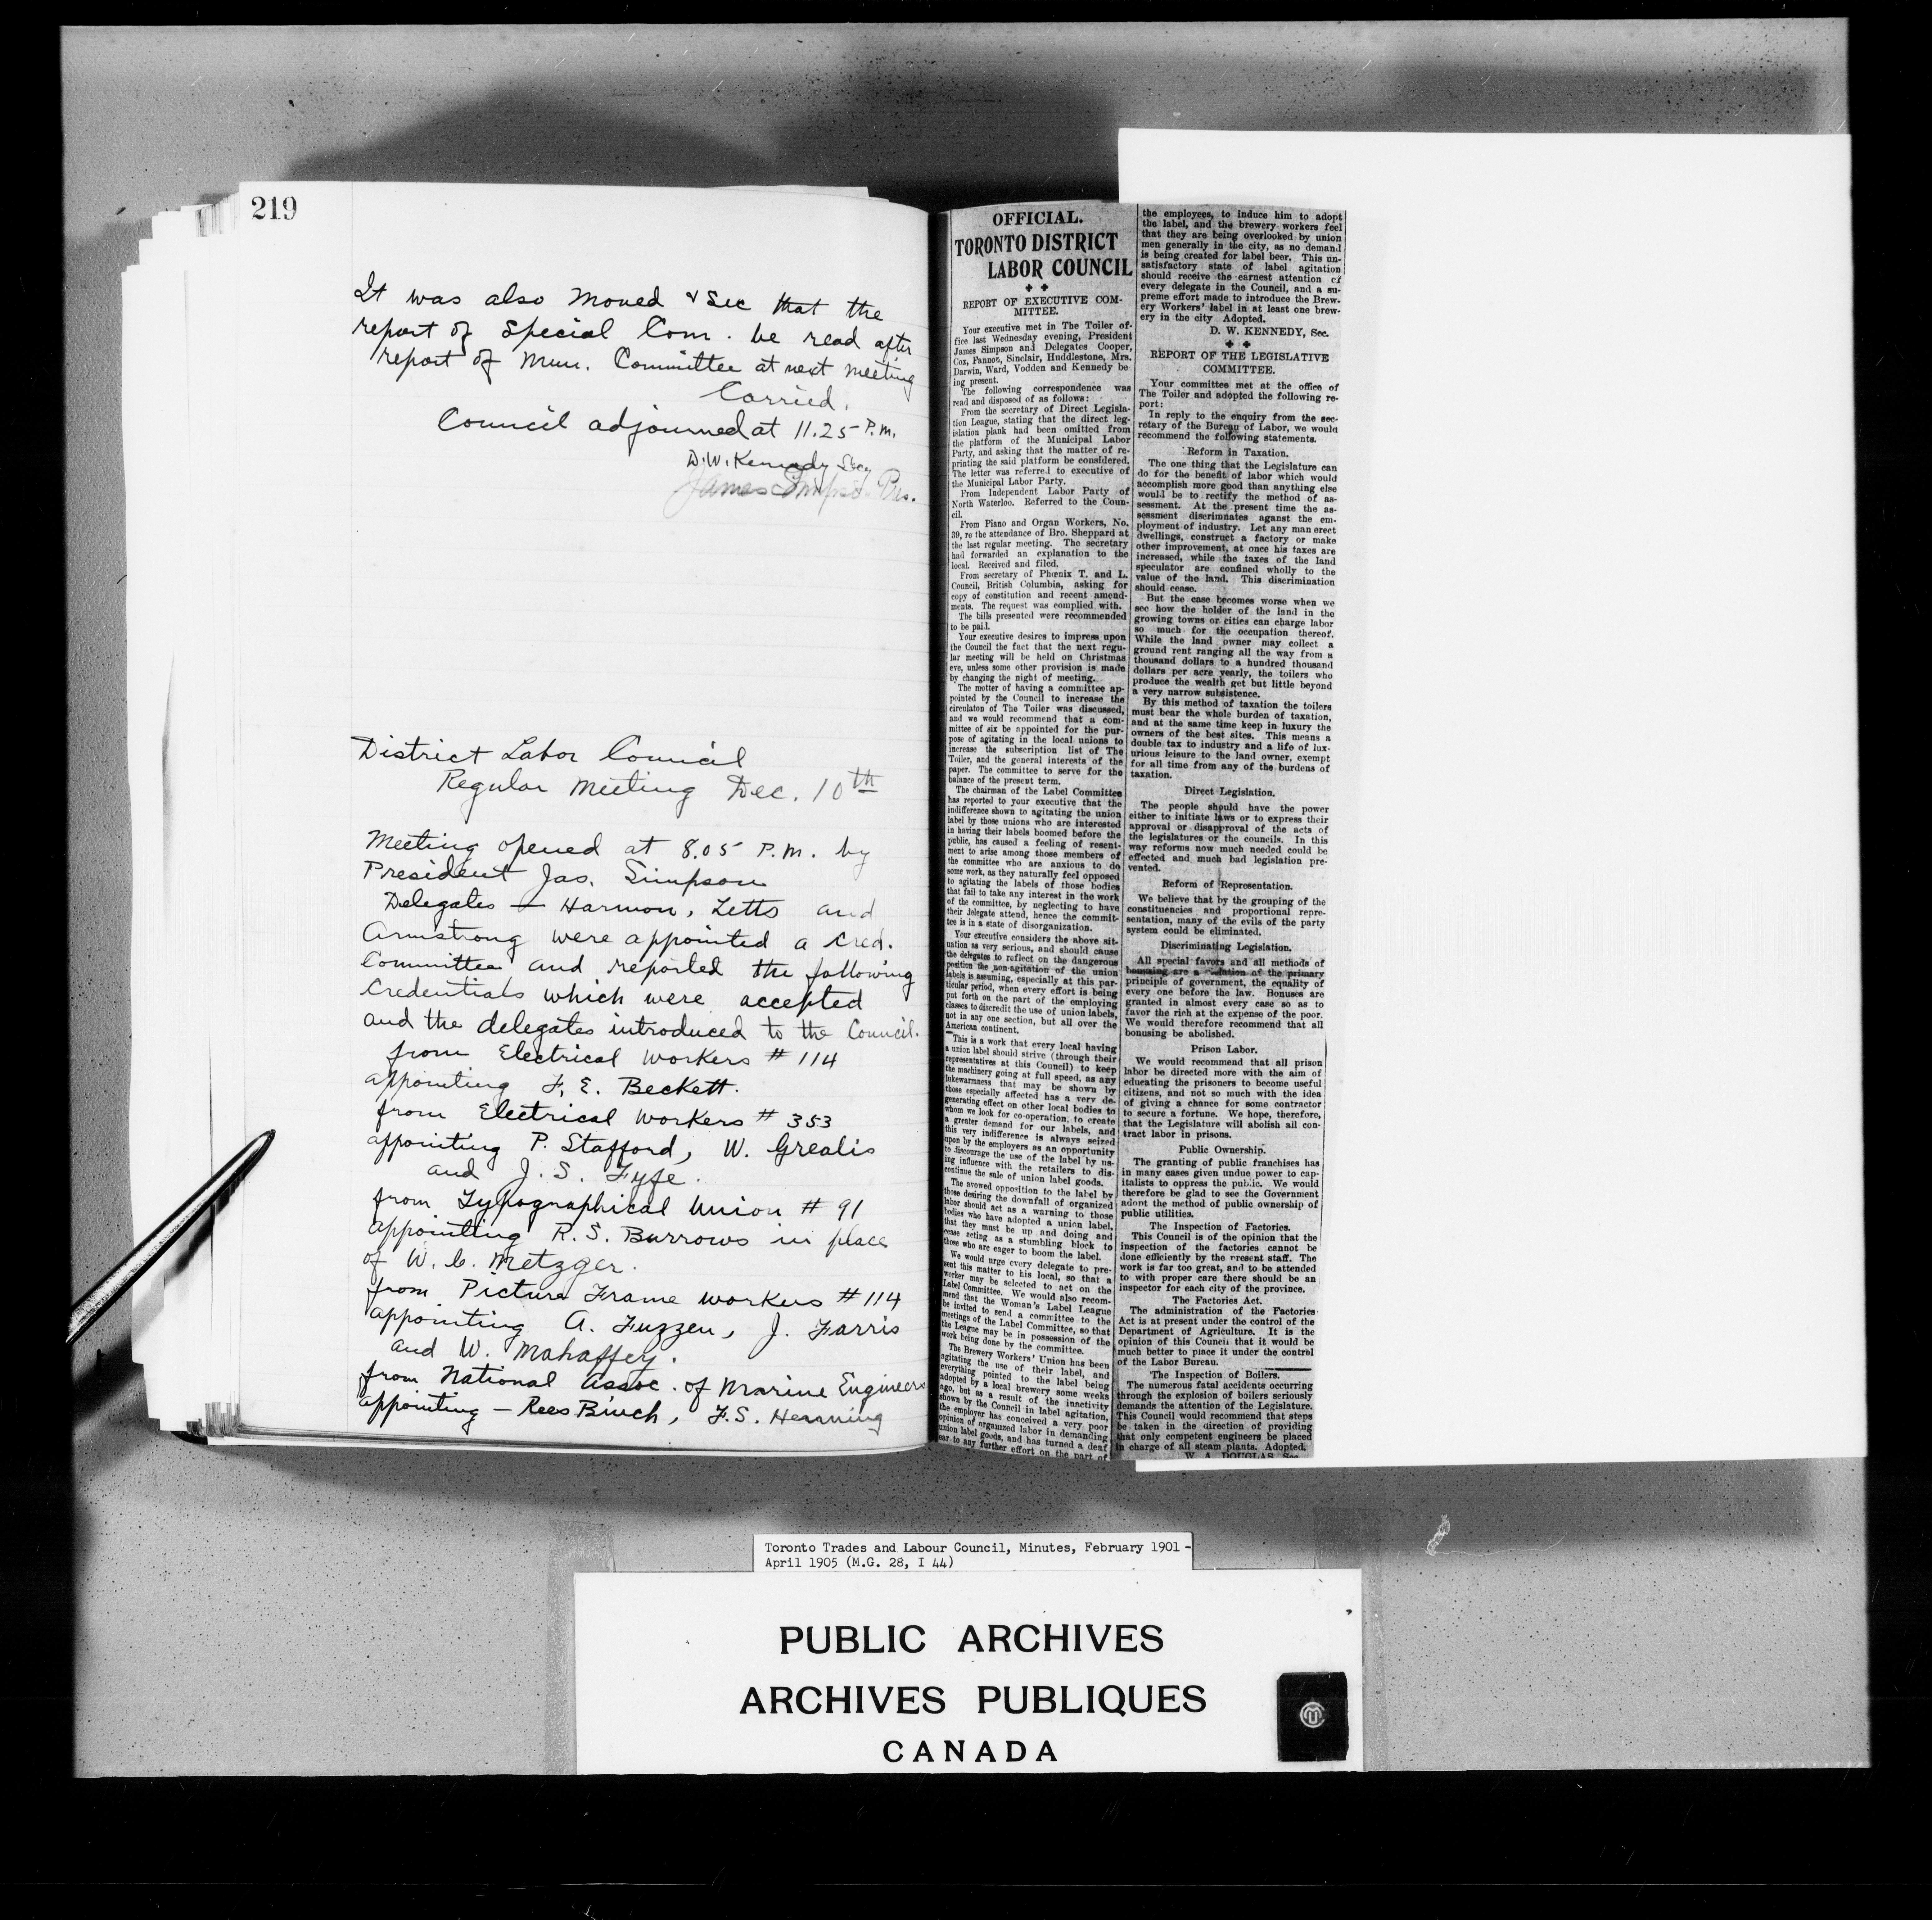 219
It was also moved & Sec that the
report of Special Com. be read after
report of Mun. Committee at next meeting
Carried.
Council adjourned at 11.25 P.M.
D.W. Kennedy Secy
James Simpson Pres.
District Labor Council
Regular Meeting Dec. 10th
Meeting opened at 8.05 P.M. by
President Jas. Simpson
Delegates — Harmon, Letts and
Armstrong were appointed a Cred.
Committee and reported the following
Credentials which were accepted
and the delegates introduced to the Council.
from Electrical Workers # 114
appointing F. E. Beckett.
from Electrical Workers # 353
appointing P. Stafford, W. Grealis
and J. S. Fyfe.
from Typographical Union # 91
appointing R. S. Burrows in place
of W. C. Metzger.
from Picture Frame Workers # 114
appointing A. Fuzzen, J. Farris
and W. Mahaffey.
from National Assoc. of Marine Engineers
appointing — Rees Binch, F.S. Henning
OFFICIAL.
TORONTO DISTRICT
LABOR COUNCIL
REPORT OF EXECUTIVE COM-
MITTEE.
Your executive met in The Toiler of-
fice last Wednesday evening, President
James Simpson and Delegates Cooper,
Cox, Fannon, Sinclair, Huddlestone, Mrs.
Darwin, Ward, Vodden and Kennedy be
ing present.
The following correspondence was
read and disposed of as follows:
From the secretary of Direct Legisla-
tion League, stating that the direct leg-
islation plank had been omitted from
the platform of the Municipal Labor
Party, and asking that the matter of re-
printing the said platform be considered.
The letter was referred to executive of
the Municipal Labor Party.
From Independent Labor Party of
North Waterloo. Referred to the Coun-
cil.
From Piano and Organ Workers, No.
39, re the attendance of Bro. Sheppard at
the last regular meeting. The secretary
had forwarded an explanation to the
local. Received and filed.
From secretary of Phœnix T. and L.
Council, British Columbia, asking for
copy of constitution and recent amend-
ments. The request was complied with.
The bills presented were recommended
to be paid.
Your executive desires to impress upon
the Council the fact that the next regu-
lar meeting will be held on Christmas
eve, unless some other provision is made
by changing the night of meeting.
The motter of having a committee ap-
pointed by the Council to increase the
circulaton of The Toiler was discussed,
and we would recommend that a com-
mittee of six be appointed for the pur-
pose of agitating in the local unions to
increase the subscription list of The
Toiler, and the general interests of the
paper. The committee to serve for the
balance of the present term.
The chairman of the Label Committee
has reported to your executive that the
indifference shown to agitating the union
label by those unions who are interested
in having their labels boomed before the
public, has caused a feeling of resent-
ment to arise among those members of
the committee who are anxious to do
some work, as they naturally feel opposed
to agitating the labels of those bodies
that fail to take any interest in the work
of the committee, by neglecting to have
their delegate attend, hence the commit-
tee is in a state of disorganization.
Your executive considers the above sit-
uation as very serious, and should cause
the delegates to reflect on the dangerous
position the non-agitation of the union
labels is assuming, especially at this par-
ticular period, when every effort is being
put forth on the part of the employing
classes to discredit the use of union labels,
not in any one section, but all over the
American continent.
This is a work that every local having
a union label should strive (through their
representatives at this Council) to keep
the machinery going at full speed, as any
lukewarmness that may be shown by
those especially affected has a very de-
generating effect on other local bodies to
whom we look for co-operation, to create
a greater demand for our labels, and
this very indifference is always seized
upon by the employers as an opportunity
to discourage the use of the label by us-
ing influence with the retailers to dis-
continue the sale of union label goods.
The avowed opposition to the label by
those desiring the downfall of organized
labor should act as a warning to those
bodies who have adopted a union label,
that they must be up and doing and
cease acting as a stumbling block to
those who are eager to boom the label.
We would urge every delegate to pre-
sent this matter to his local, so that a
worker may be selected to act on the
Label Committee. We would also recom-
mend that the Woman's Label League
be invited to send a committee to the
meetings of the Label Committee, so that
the League may be in possession of the
work being done by the committee.
The Brewery Workers' Union has been
agitating the use of their label, and
everything pointed to the label being
adopted by a local brewery some weeks
ago, but as a result of the inactivity
shown by the Council in label agitation,
the employer has conceived a very poor
opinion of organized labor in demanding
union label goods, and has turned a deaf
ear to any further effort on the part of
the employees, to induce him to adopt
the label, and the brewery workers feel
that they are being overlooked by union
men generally in the city, as no demand
is being created for label beer. This un-
satisfactory state of label agitation
should receive the earnest attention of
every delegate in the Council, and a su-
preme effort made to introduce the Brew-
ery Workers' label in at least one brew-
ery in the city Adopted.
D. W. KENNEDY, Sec.
REPORT OF THE LEGISLATIVE
COMMITTEE.
Your committee met at the office of
The Toiler and adopted the following re-
port:
In reply to the enquiry from the sec-
retary of the Bureau of Labor, we would
recommend the following statements.
Reform in Taxation.
The one thing that the Legislature can
do for the benefit of labor which would
accomplish more good than anything else
would be to rectify the method of as-
sessment. At the present time the as-
sessment discrimnates aganst the em-
ployment of industry. Let any man erect
dwellings, construct a factory or make
other improvement, at once his taxes are
increased, while the taxes of the land
speculator are confined wholly to the
value of the land. This discrimination
should cease.
But the case becomes worse when we
see how the holder of the land in the
growing towns or cities can charge labor
so much for the occupation thereof.
While the land owner may collect a
ground rent ranging all the way from a
thousand dollars to a hundred thousand
dollars per acre yearly, the toilers who
produce the wealth get but little beyond
a very narrow subsistence.
By this method of taxation the toilers
must bear the whole burden of taxation,
and at the same time keep in luxury the
owners of the best sites. This means a
double tax to industry and a life of lux-
urious leisure to the land owner, exempt
for all time from any of the burdens of
taxation.
Direct Legislation.
The people should have the power
either to initiate laws or to express their
approval or disapproval of the acts of
the legislatures or the councils. In this
way reforms now much needed could be
effected and much bad legislation pre-
vented.
Reform of Representation.
We believe that by the grouping of the
constituencies and proportional repre-
sentation, many of the evils of the party
system could be eliminated.
Discriminating Legislation.
All special favors and all methods of
bonusing are a violation of the primary
principle of government, the equality of
every one before the law. Bonuses are
granted in almost every case so as to
favor the rich at the expense of the poor.
We would therefore recommend that all
bonusing be abolished.
Prison Labor.
We would recommend that all prison
labor be directed more with the aim of
educating the prisoners to become useful
citizens, and not so much with the idea
of giving a chance for some contractor
to secure a fortune. We hope, therefore,
that the Legislature will abolish all con-
tract labor in prisons.
Public Ownership.
The granting of public franchises has
in many cases given undue power to cap-
italists to oppress the public. We would
therefore be glad to see the Government
adopt the method of public ownership of
public utilities.
The Inspection of Factories.
This Council is of the opinion that the
inspection of the factories cannot be
done efficiently by the present staff. The
work is far too great, and to be attended
to with proper care there should be an
inspector for each city of the province.
The Factories Act.
The administration of the Factories
Act is at present under the control of the
Department of Agriculture. It is the
opinion of this Council that it would be
much better to place it under the control
of the Labor Bureau.
The Inspection of Boilers.
The numerous fatal accidents occurring
through the explosion of boilers seriously
demands the attention of the Legislature.
This Council would recommend that steps
be taken in the direction of providing
that only competent engineers be placed
in charge of all steam plants. Adopted.
W. A. DOUGLAS, Sec.
Toronto Trades and Labour Council, Minutes, February 1901 -
April 1905 (M.G. 28, I 44)
PUBLIC ARCHIVES
ARCHIVES PUBLIQUES
CANADA